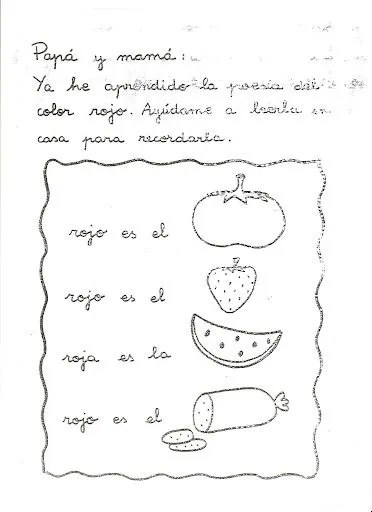 Papá y mamá:
Ya he aprendido la poesía del
color rojo. Ayúdame a leerla en
casa para recordarla.
rojo es el
rojo es el
roja es la
rojo es el